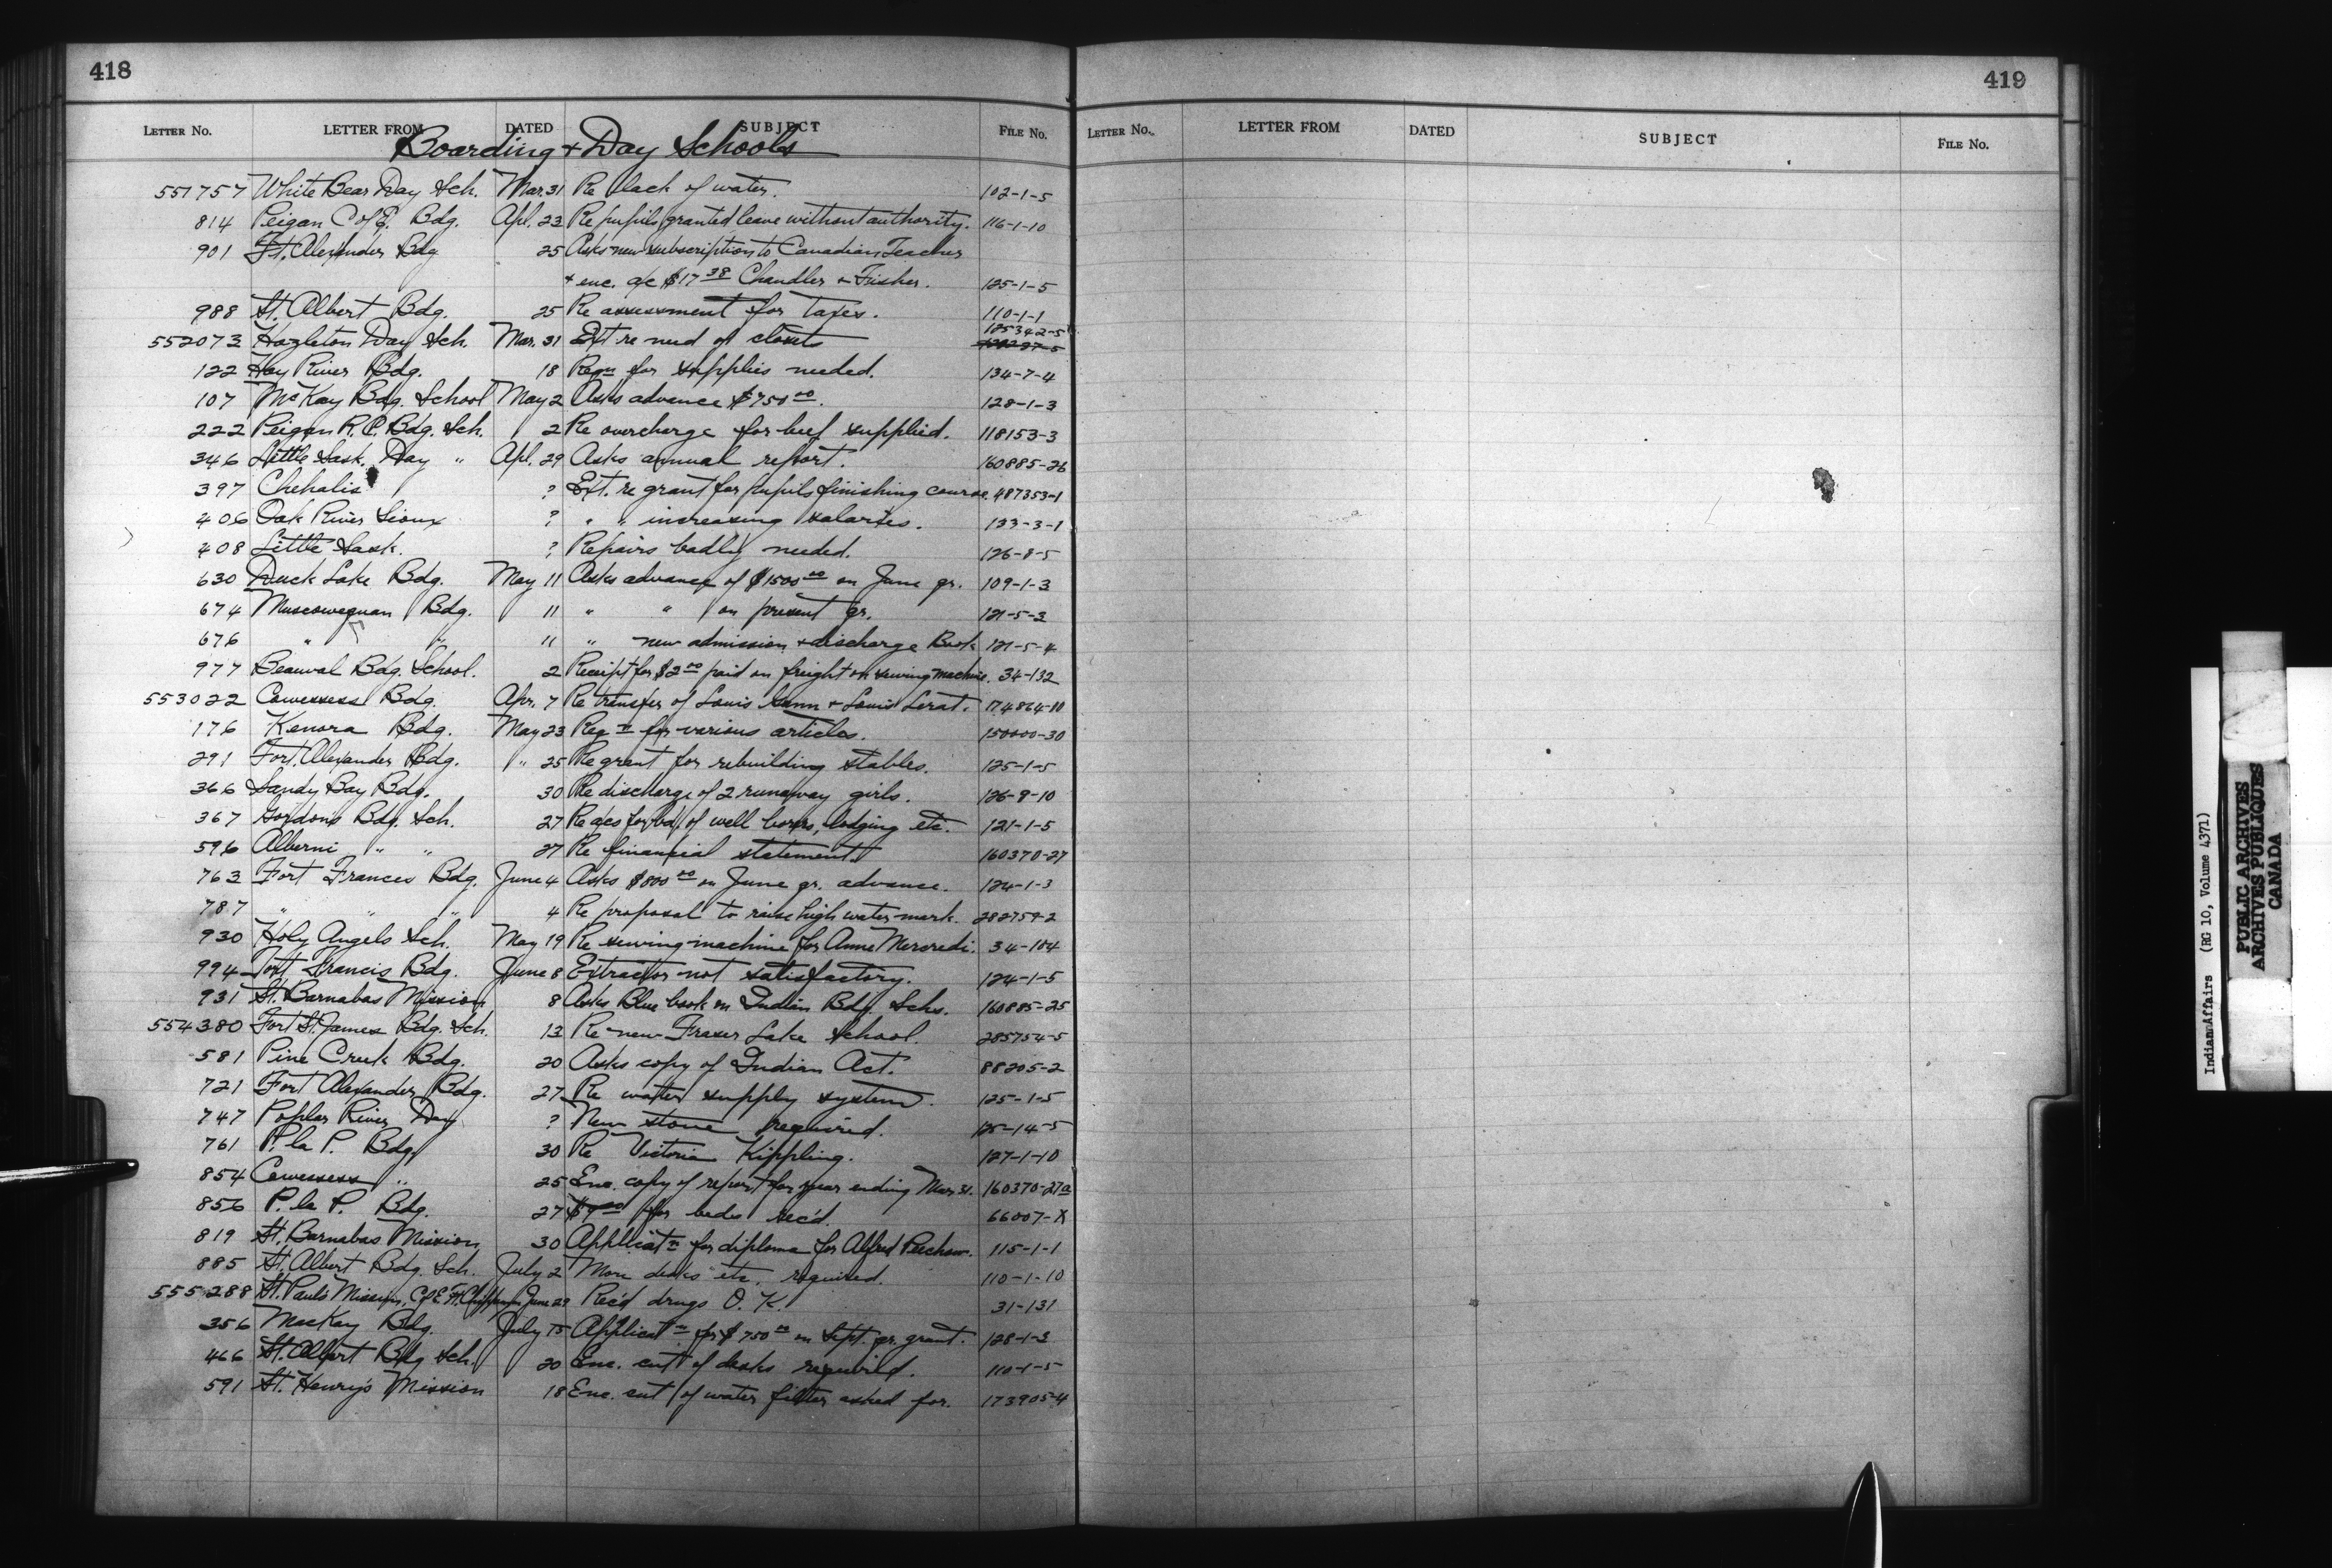 418
LETTER No. LETTER FROM DATED SUBJECT FILE No.
Boarding + Day Schools
551757 White Bear Day Sch. Mar. 31 Re lack of water. 102-1-5
814 Peigan C of E. Bdg. Apl. 23 Re pupils granted leave without authority. 116-1-10
901 Ft. Alexander Bdg 25 Asks new subscription to Canadian Teacher
+ enc. a/c $17 38 Chandler & Fisher. 125-1-5
988 St. Albert Bdg. 25 Re assessment for taxes. 110-1-1
125342-5
552073 Hazleton Day Sch. Mar. 31 Ext re need of closets
122 Hay River Bdg. 18 Reqn for supplies needed. 134-7-4
107 McKay Bdg. School May 2 Asks advance $750 00. 128-1-3
222 Peigan R.C. Bdg. Sch. 2 Re overcharge for beef supplied. 118153-3
346 Little Sask. Day " Apl. 29 Asks annual report. 160885-26
397 Chehalis ? Ext. re grant for pupils finishing course. 487353-1
406 Oak River Sioux ? " " increasing salaries. 133-3-1
408 Little Sask. ? Repairs badly needed. 126-8-5
630 Duck Lake Bdg. May 11 Asks advance of $1500 00 on June qr. 109-1-3
674 Muscowequan Bdg. 11 " " on present qr. 121-5-3
676 " " 11 " new admission + discharge Book 121-5-4
977 Beauval Bdg. School. 2 Receipt for $2 00 paid on freight on sewing machine. 34-132
553022 Cowessess Bdg. Apr. 7 Re transfer of Louis + Louis Lerat. 174864-10
176 Kenora Bdg. May 23 Reqn for various articles. 150000-30
291 Fort. Alexander Bdg. " 25 Re grant for rebuilding stables. 125-1-5
366 Sandy Bay Bdg. 30 Re discharge of 2 runaway girls. 126-9-10
367 Gordons Bdg. Sch. 27 Re a/cs for bd. of well borers, lodging etc. 121-1-5
596 Alberni " " 27 Re financial statement 160370-27
763 Fort Frances Bdg. June 4 Asks $800 00 on June qr. advance. 124-1-3
787 " " " 4 Re proposal to raise high water mark. 282759-2
930 Holy Angels Sch. May 19 Re sewing-machine for Anne Mercredi. 34-104
994 Fort Francis Bdg. June 8 Extractor not satisfactory. 124-1-5
931 St. Barnabas Mission 8 Asks Blue book on Indian Bdg. Schs. 160885-25
554380 Fort St. James Bdg. Sch. 13 Re new Fraser Lake School. 285754-5
581 Pine Creek Bdg. 20 Asks copy of Indian Act. 88205-2
721 Fort Alexander Bdg. 27 Re water supply system. 125-1-5
747 Poplar River Day ? New stove required. 125-14-5
761 P. la P. Bdg. 30 Re Victoria Kippling. 127-1-10
854 Cowessess " 25 Enc. copy of report for year ending Mar. 31. 160370-27a
856 P. la P. Bdg. 27 for beds rec'd. 66007-X
819 St. Barnabas Mission 30 Applicatn for diploma for Alfred 115-1-1
885 St. Albert Bdg. Sch. July 2 More desks etc. required. 110-1-10
555288 St. Paul's Mission, C of E June 29 Rec'd drugs O. K. 31-131
356 MacKay Bdg. July 15 Applicatn for $750 00 on Sept. qr. grant. 128-1-3
466 St. Albert Bdg Sch. 20 Enc. cut of desks required. 110-1-5
591 St. Henry's Mission 18 Enc. cut of water filter asked for. 173905-4
419
LETTER No. LETTER FROM DATED SUBJECT FILE No.
Indian Affairs (RG 10, Volume 4371)
PUBLIC ARCHIVES
ARCHIVES PUBLIQUES
CANADA